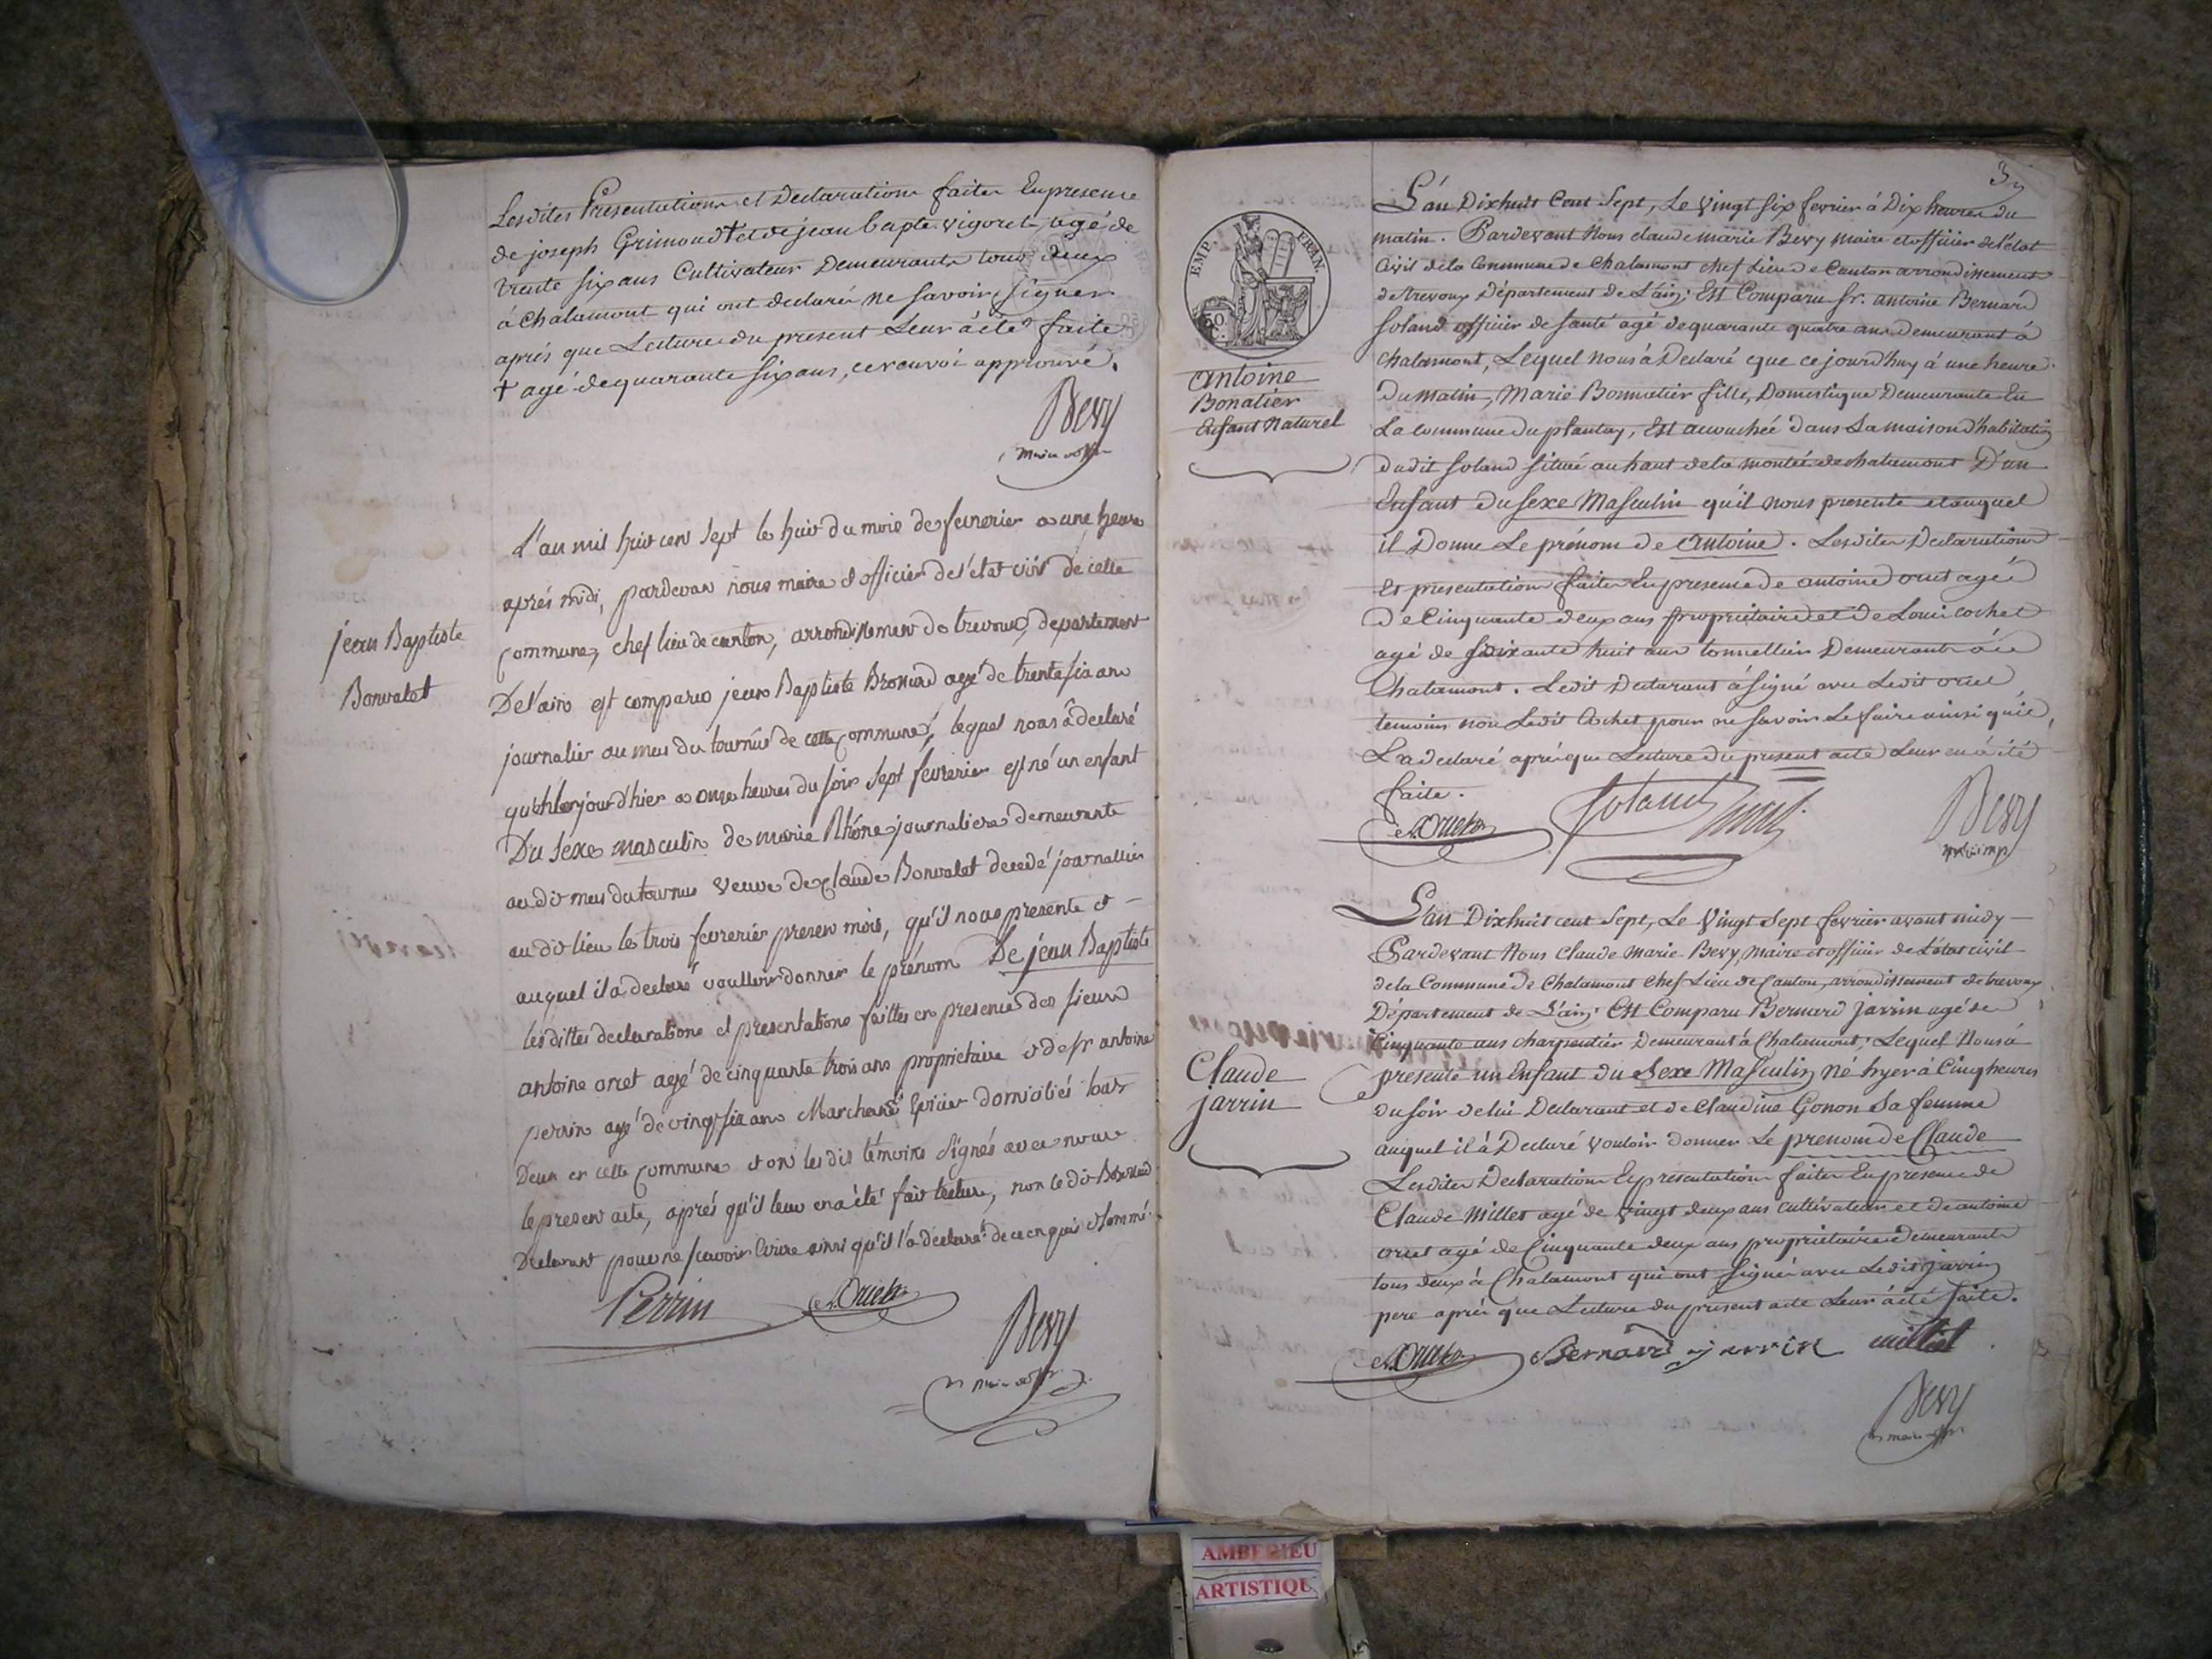 Lesdites Presentations et Declarations faites En presence
de joseph Grimoud + et de jean bapte. vigoret, agé de
trente six ans Cultivateur Demeurants tous deux
à Chalamont qui ont declaré ne savoir signer
aprés que Lecture du present Leur à été faite
+ agé de quarante six ans, ce renvoi approuvé.
Bevy
jean Baptiste
Bonvalet
L'an mil huit cent sept le huit du mois de fevrerier a une heure
aprés midi, pardevan nous maire et officier de l'état civil de cette
commune, chef lieu de canton, arrondissement de trevoux, departement
De l'ain est comparu jean Baptiste Brossard agé de trente six ans
journalier au mas du tournus de cette commune, lequel nous â declaré
qu'hier jour d'hier a onze heures du soir sept fevrerier est né un enfant
Du Sexe masculin de marie Rhône journaliere demeurante
au dit mas du tournus veuve de claude Bonvalet decedé journallier
au dit lieu le trois fevrerier presen mois, qu'il nous presente et
auquel il a declaré voulloir donner le prénom De jean Baptiste
les dittes declarations et presentations faittes en presence des sieurs
antoine oriet agé de cinquante trois ans proprietaire et de sr antoine
perrin agé de vingt six ans Marchand Epicier domiciliés tous
Deux en cette commune et ont les dits témoins signés avec nous
le present acte, aprés qu'il leur en a été fait lecture, non le dit Brossard
Declarant pour ne scavoir Ecrire ainsi qu'il l'a declaré de ce enquis et sommé.
Perrin A. Oriet
Bevy
EMP. FRAN.
antoine
Bonatier
Enfant Naturel
L'an Dix huit Cent Sept, Le vingt six fevrier à Dix heures du
matin. Pardevant Nous claude marie Bevy maire et officier de l'etat
Civil de la Commune de Chalamont chef Lieu de Canton arrondissement
de trevoux Département de L'ain; Est Comparu Sr. antoine Bernard
Soland officier de santé agé de quarante quatre ans demeurant à
chalamont, Lequel Nous à Declaré que ce jourd'huy à une heure
du matin, Marie Bonnatier fille, Domestique Demeurante En
La commune du plantay, Est accouchée dans La maison d'habitation
dudit Soland située au haut de la montée de chalamont D'un
Enfant Du Sexe Masculin qu'il nous presente et auquel
il Donne Le prénom de Antoine. Lesdites Declarations
Et presentations faites En presence de antoine oriet agé
de Cinquante deux ans propriétaire et de Louis cochet
agé de soixante huit ans tonnellier Demeurants à
Chalamont. Ledit Declarant à signé avec Ledit oriet
temoins non Ledit Cochet pour ne savoir Le faire ainsi qu'il
L'a declaré aprés que Lecture du present acte Leur en à été
faite.
A. Oriet Soland
Bevy
Claude
jarrin
L'an Dix huit cent Sept, Le Vingt Sept fevrier avant midy
Pardevant Nous Claude Marie Bevy, Maire et officier de L'état civil
de la Commune De Chalamont Chef Lieu de Canton, arrondissement de trevoux
Département de L'ain; Est Comparu Bernard jarrin agé de
Cinquante ans charpentier Demeurant à Chalamont; Lequel Nous à
presenté un Enfant du Sexe Masculin Né hyer à Cinq heures
du soir de lui Declarant et de Claudine Gonon Sa femme
auquel il à Declaré vouloir donner Le prenom de Claude
Lesdites Declarations Et présentations faites En presence de
Claude Millet agé de vingt deux ans cultivateur et de antoine
oriet agé de Cinquante deux ans propriétaire demeurants
tous deux à Chalamont qui ont signé avec Ledit jarrin
pere aprés que Lecture du present acte Leur à été faite.
A. Oriet Bernard jarrin milliet
Bevy
AMBERIEU
ARTISTIQUE